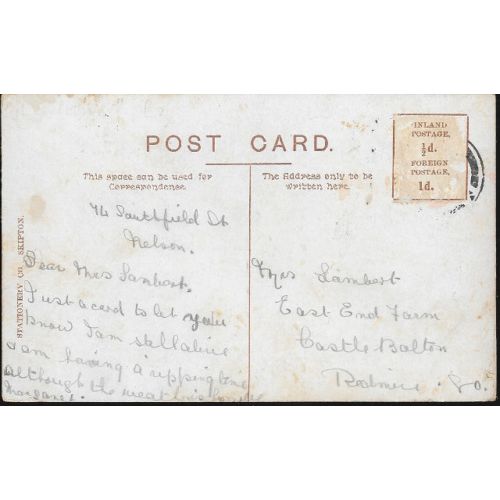 POST CARD.
This space can be used for
Correspondence.
The Address only to be
written here.
INLAND
POSTAGE,
½d.
FOREIGN
POSTAGE,
1d.
STATIONERY CO. SKIPTON.
74 Southfield St
Nelson.
Dear Mrs Lambert,
Just a card to let you
know I am still alive
I am having a ripping time
although the weat
Margaret.
Mrs Lambert
East End Farm
Castle Bolton
Redmire S.O.